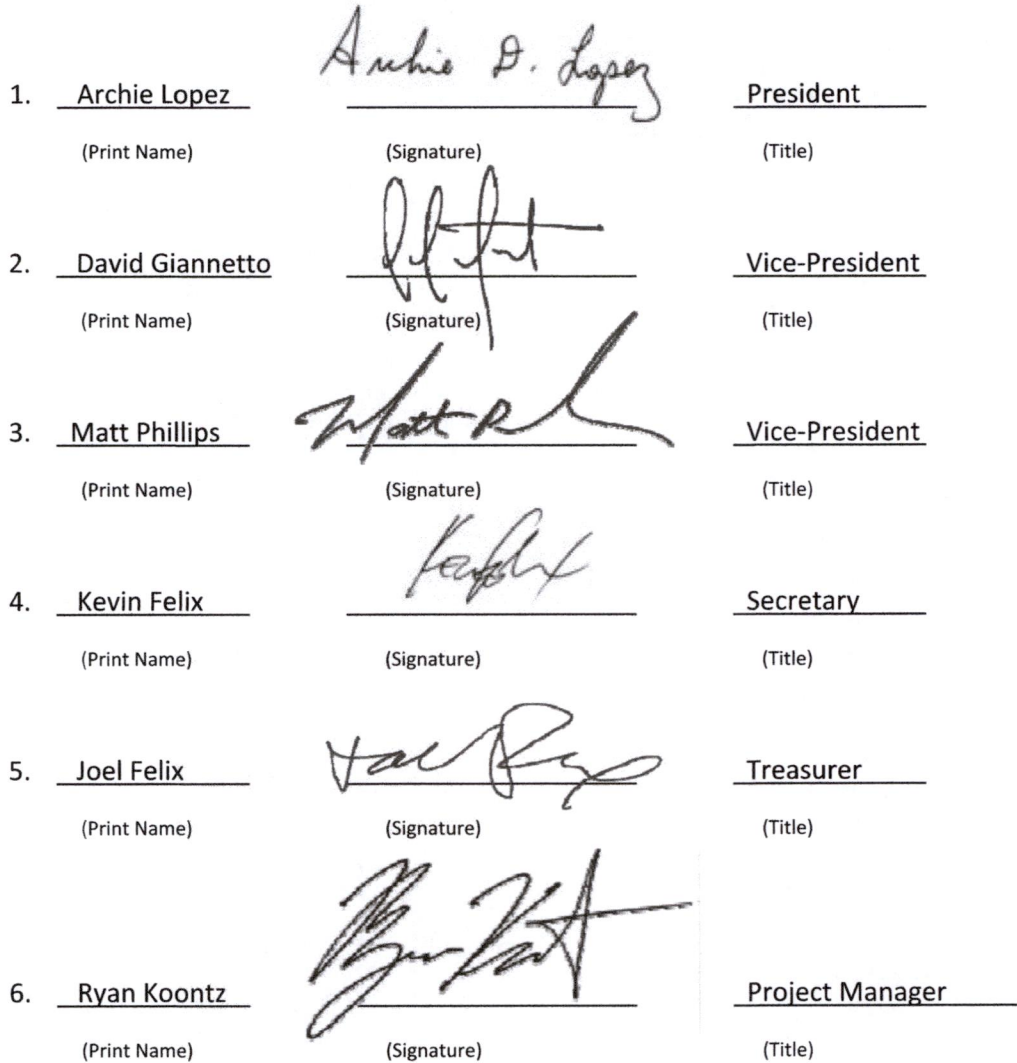 Archie D. Lopez
1. Archie Lopez President
(Print Name) (Signature) (Title)
2. David Giannetto Vice-President
(Print Name) (Signature) (Title)
Matt
3. Matt Phillips Vice-President
(Print Name) (Signature) (Title)
4. Kevin Felix Secretary
(Print Name) (Signature) (Title)
5. Joel Felix Treasurer
(Print Name) (Signature) (Title)
6. Ryan Koontz Project Manager
(Print Name) (Signature) (Title)